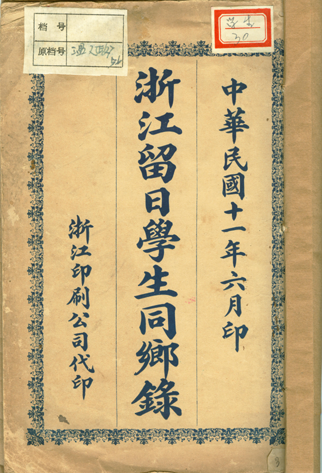 档号
原档号
30
中華民國十一年六月印
浙江留日學生同鄉錄
浙江印刷公司代印